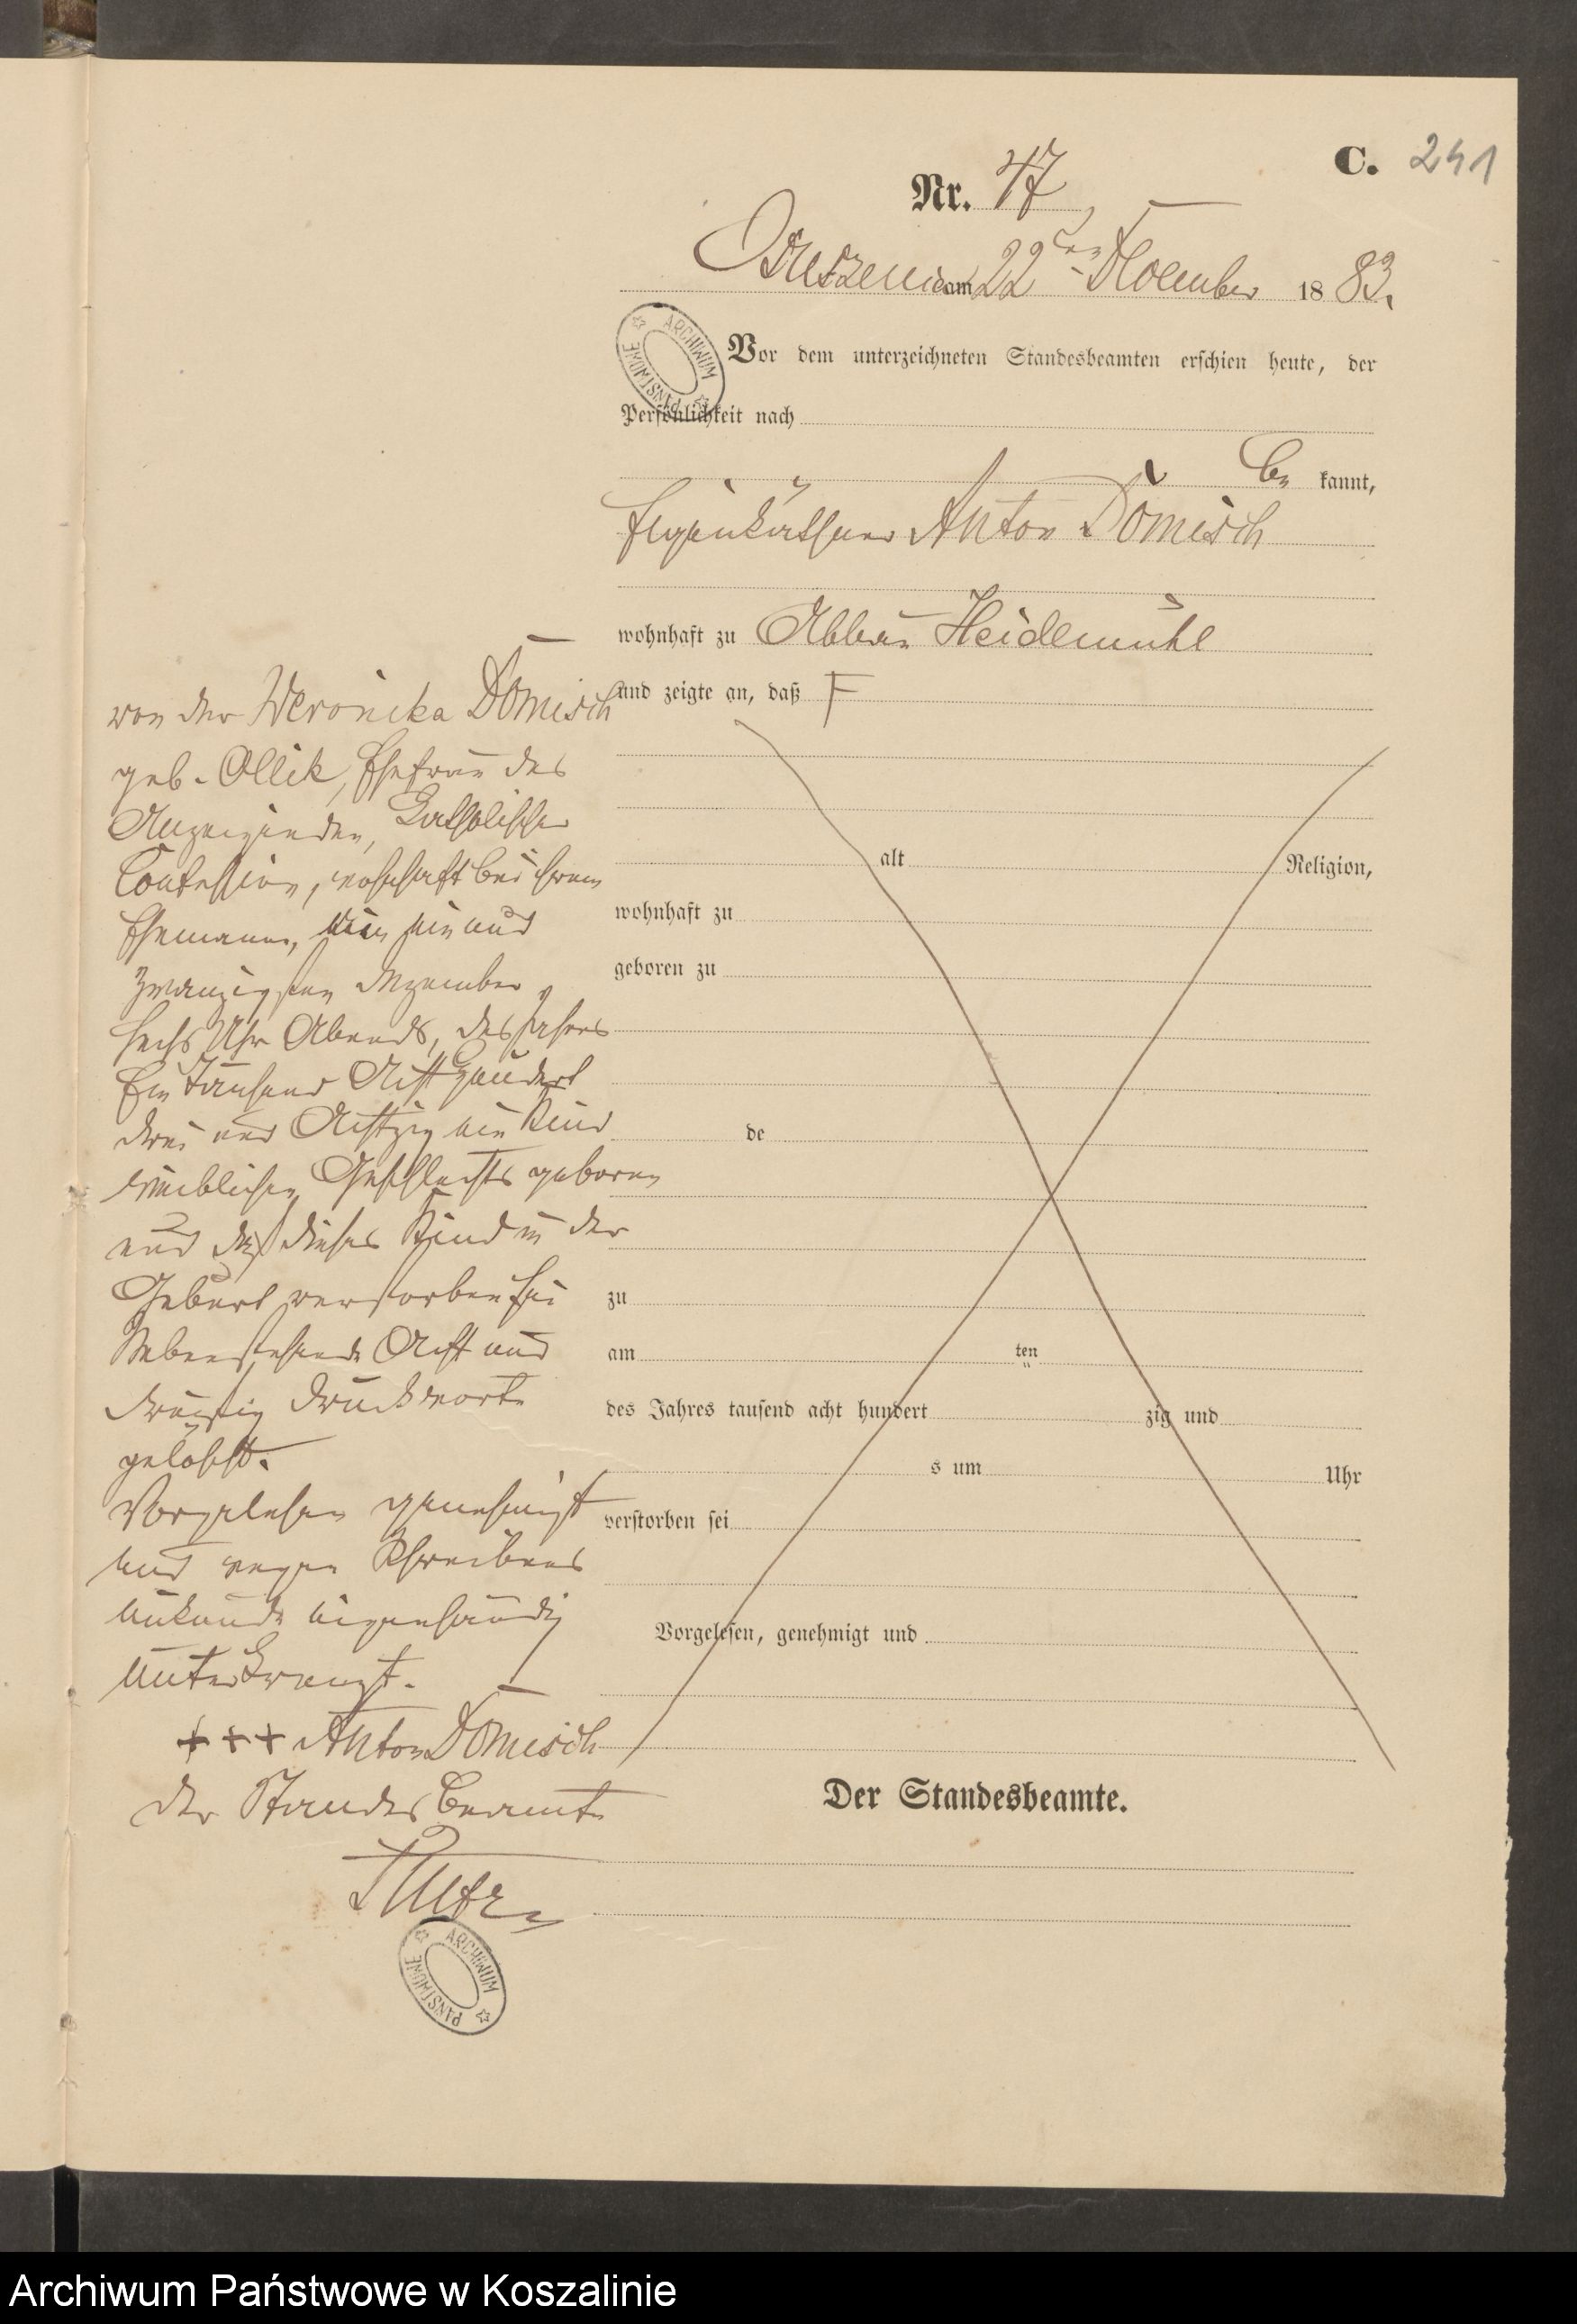 C. 241
Nr. 47
am 22ten November 1883.
Vor dem unterzeichneten Standesbeamten erschien heute, der
Persönlichkeit nach
be kannt,
Eigenkäthner Anton Domisch
wohnhaft zu Abbau Heidemühl
und zeigte an, daß
von der Weronicka Domisch
geb. Ollik, Ehefrau des
Anzeigenden, Katholischer
Confession, wohnhaft bei ihrem
Ehemanne, am ein und
zwanzigsten
sechs Uhr Abends, des Jahres
Ein Tausend Acht Hundert
drei und Achtzig ein Kind
weiblichen Geschlechts geboren
und daß dieses Kind in der
Geburt verstorben sei
Nebenstehende Acht und
dreißig Druckworte
gelöscht.
Vorgelesen genehmigt
und wegen Schreibens
unkunde eigenhändig
unterkreuzt.
+++ Anton Domisch
der Standesbeamte
alt Religion,
wohnhaft zu
geboren zu
de
zu
am ten
des Jahres tausend acht hundert zig und
s um Uhr
verstorben sei
Vorgelesen, genehmigt und
Der Standesbeamte.
ARCHIWUM PAŃSTWOWE
ARCHIWUM PAŃSTWOWE
Archiwum Państwowe w Koszalinie